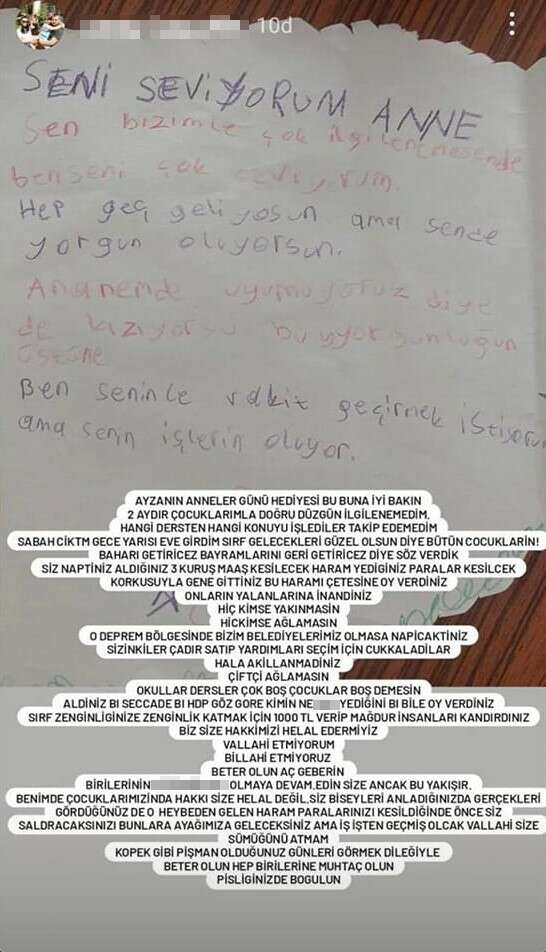 10d
SENİ SEVİYORUM ANNE
Sen bizimle çok ilgilenemesende
ben seni çok seviyorum.
Hep geç geliyosun ama sende
yorgun oluyorsun.
Ananemde uyumuyoruz diye
de kızıyorsu bu yorgunluğun
üstüne
Ben seninle vakit geçirmek istiyoru
ama senin işlerin oluyor.
AYZANIN ANNELER GÜNÜ HEDİYESİ BU BUNA İYİ BAKIN
2 AYDIR ÇOCUKLARIMLA DOĞRU DÜZGÜN İLGİLENEMEDİM,
HANGİ DERSTEN HANGİ KONUYU İŞLEDİLER TAKİP EDEMEDİM
SABAH CİKTM GECE YARISI EVE GİRDİM SIRF GELECEKLERİ GÜZEL OLSUN DİYE BÜTÜN COCUKLARİN!
BAHARI GETİRİCEZ BAYRAMLARINI GERİ GETİRİCEZ DİYE SÖZ VERDİK
SİZ NAPTİNİZ ALDIĞINIZ 3 KURUŞ MAAŞ KESİLECEK HARAM YEDİGİNİZ PARALAR KESİLCEK
KORKUSUYLA GENE GİTTİNİZ BU HARAMİ ÇETESİNE OY VERDİNİZ
ONLARIN YALANLARINA İNANDİNİZ
HİÇ KİMSE YAKINMASIN
HİCKİMSE AĞLAMASIN
O DEPREM BÖLGESİNDE BİZİM BELEDİYELERİMİZ OLMASA NAPİCAKTİNİZ
SİZİNKİLER ÇADIR SATIP YARDIMLARI SEÇİM İÇİN CUKKALADİLAR
HALA AKİLLANMADİNİZ
ÇİFTÇİ AĞLAMASIN
OKULLAR DERSLER ÇOK BOŞ ÇOCUKLAR BOŞ DEMESİN
ALDİNİZ BI SECCADE BI HDP GÖZ GORE KİMİN NE YEDİĞİNİ BI BİLE OY VERDİNİZ
SIRF ZENGİNLİGİNİZE ZENGİNLİK KATMAK İÇİN 1000 TL VERİP MAĞDUR İNSANLARI KANDIRDINIZ
BİZ SİZE HAKKİMİZİ HELAL EDERMİYİZ
VALLAHİ ETMİYORUM
BİLLAHİ ETMİYORUZ
BETER OLUN AÇ GEBERİN
BİRİLERİNİN OLMAYA DEVAM,EDİN SİZE ANCAK BU YAKIŞIR,
BENİMDE ÇOCUKLARIMIZINDA HAKKI SİZE HELAL DEĞİL,SİZ BISEYLERİ ANLADIĞINIZDA GERÇEKLERİ
GÖRDÜĞÜNÜZ DE O HEYBEDEN GELEN HARAM PARALARINIZI KESİLDİĞİNDE ÖNCE SİZ
SALDRACAKSINIZI BUNLARA AYAĞIMIZA GELECEKSİNİZ AMA İŞ İŞTEN GEÇMİŞ OLCAK VALLAHİ SİZE
SÜMÜĞÜNÜ ATMAM
KOPEK GİBİ PİŞMAN OLDUĞUNUZ GÜNLERİ GÖRMEK DİLEĞİYLE
BETER OLUN HEP BİRİLERİNE MUHTAÇ OLUN
PİSLİGİNİZDE BOGULUN